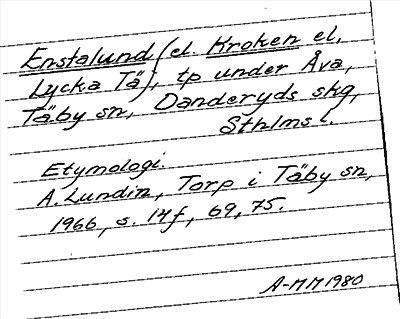 Enstalund (el. Kroken el.
Lycka Tä), tp under Åva,
Täby sn, Danderyds skg,
Sthlms l.
Etymologi.
A. Lundin, Torp i Täby sn,
1966, s. 14f, 69, 75.
A-MM 1980